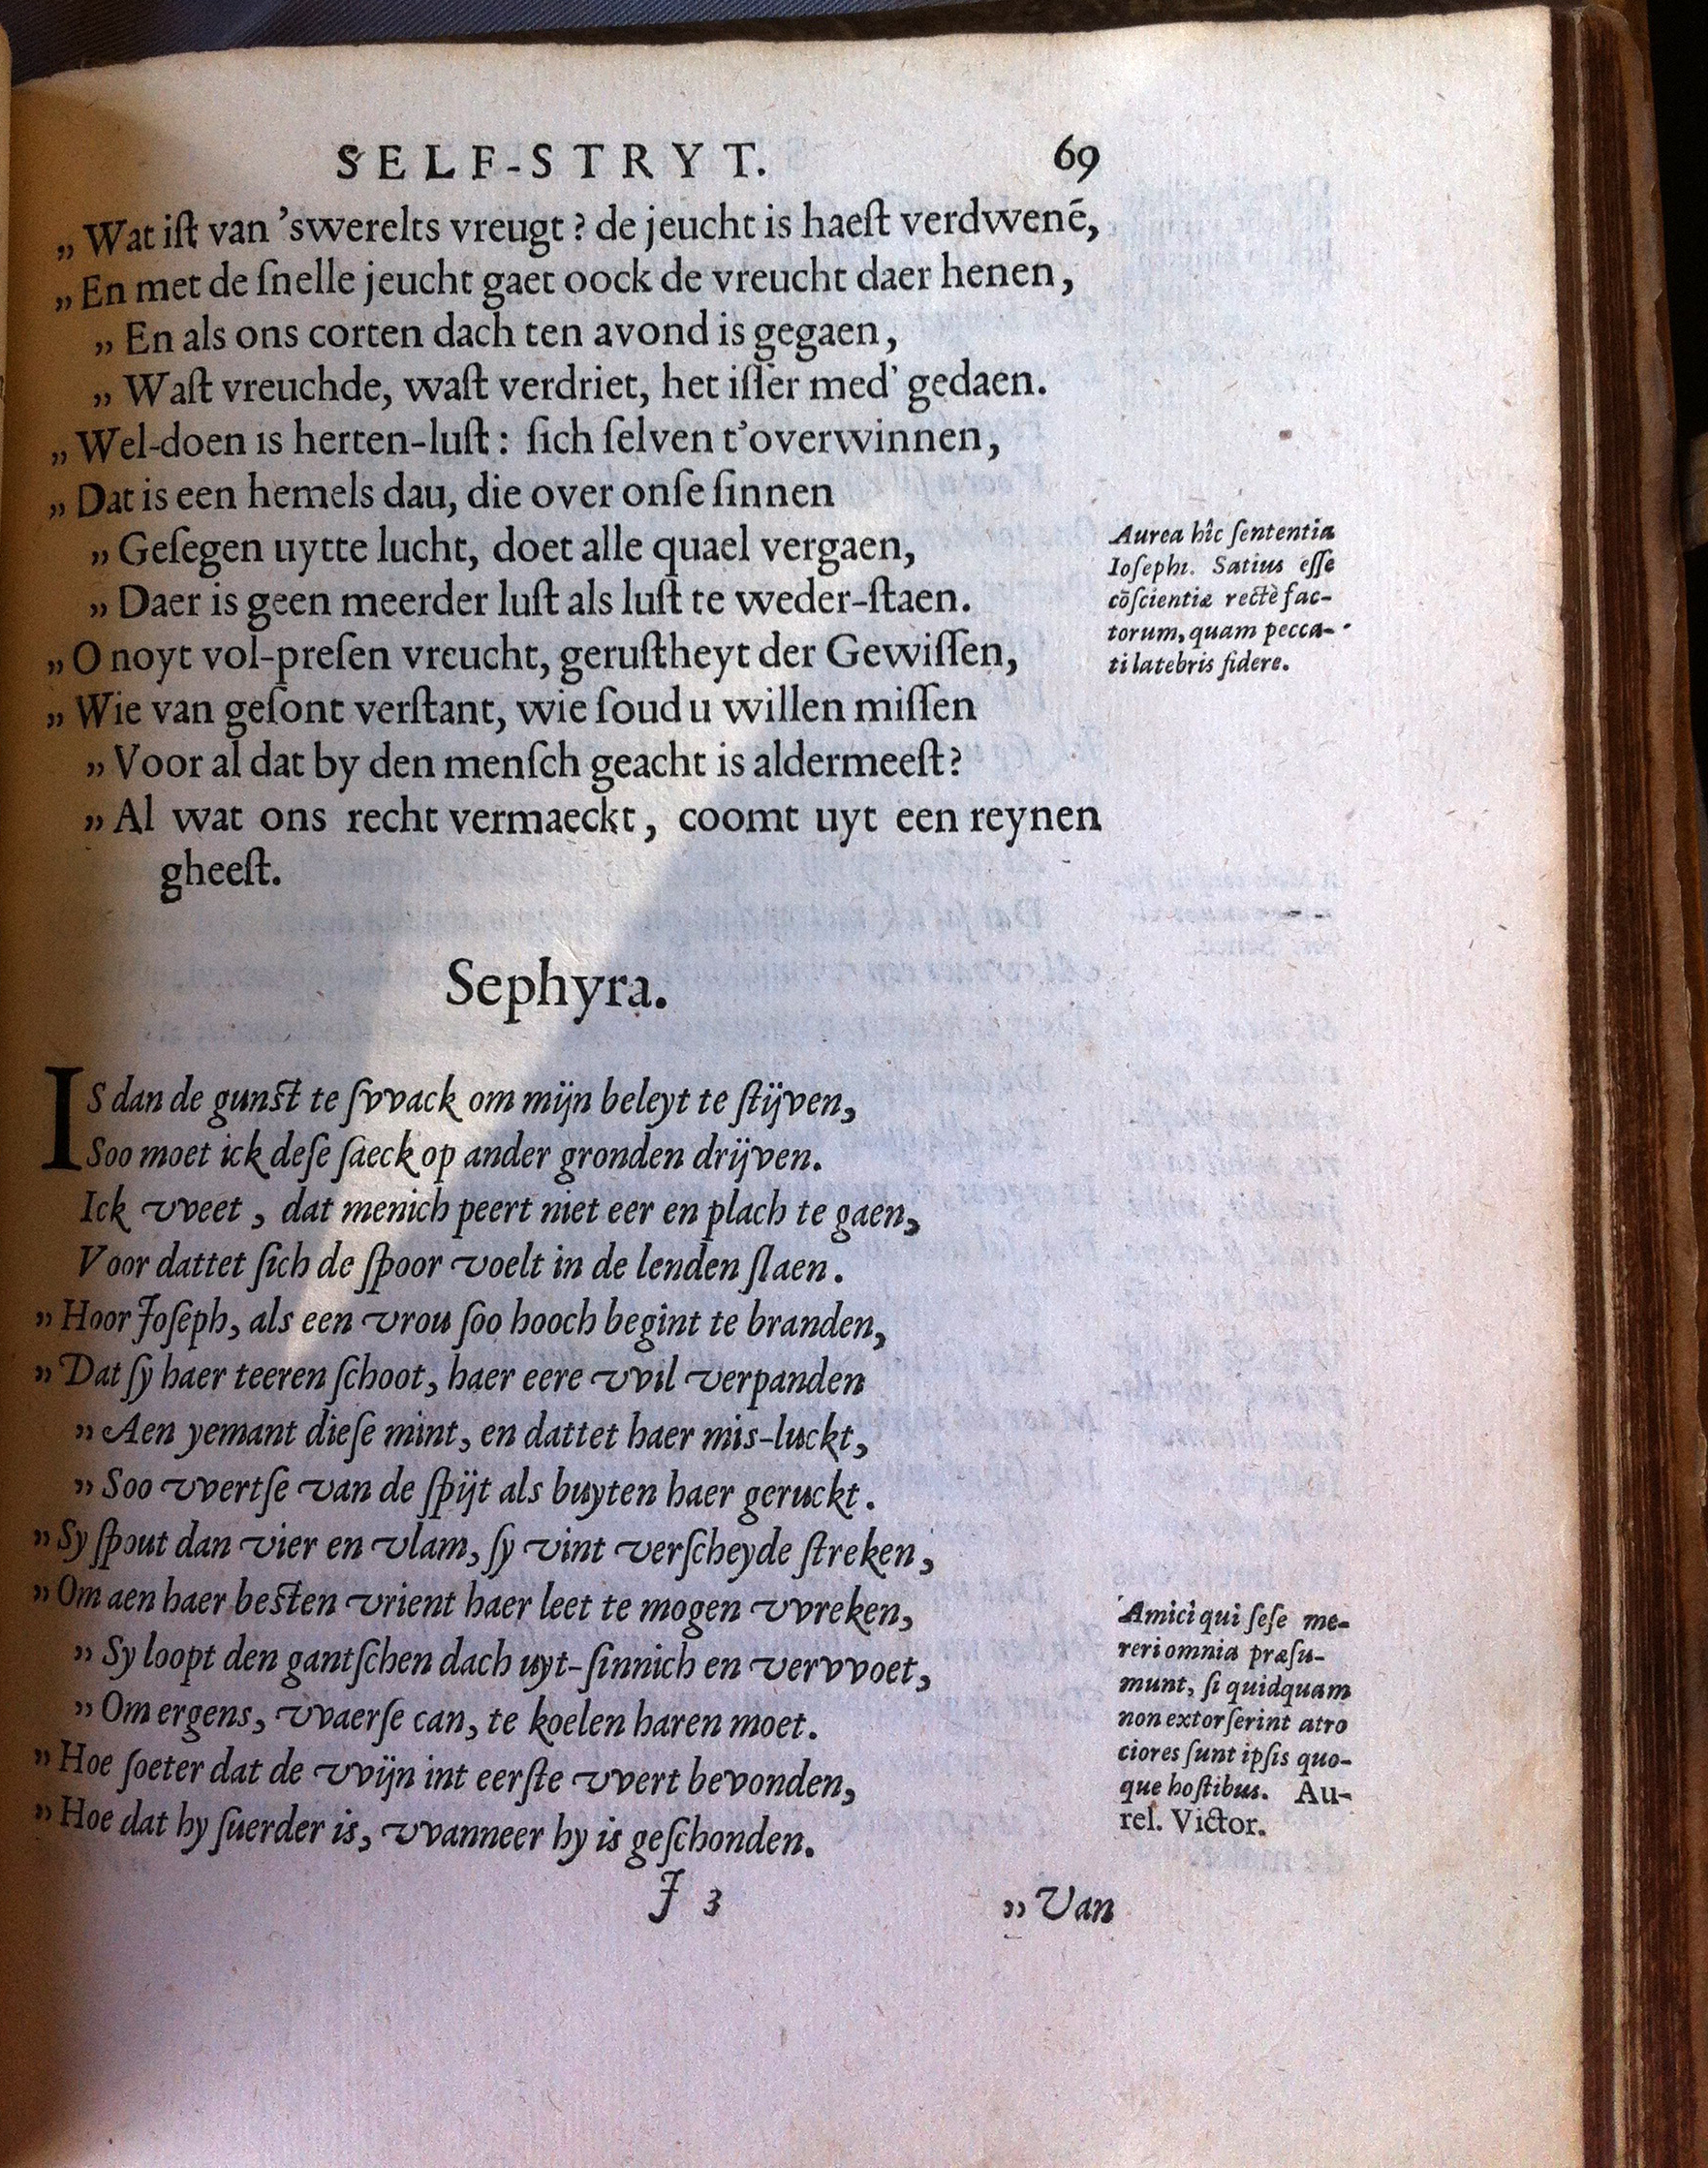 SELF-STRYT. 69
„Wat iſt van ’swerelts vreugt? de jeucht is haeſt verdwenē,
„En met de ſnelle jeucht gaet oock de vreucht daer henen,
„En als ons corten dach ten avond is gegaen,
„Waſt vreuchde, waſt verdriet, het iſſer med’ gedaen.
„Wel-doen is herten-luſt: ſich ſelven t’overwinnen,
„Dat is een hemels dau, die over onſe ſinnen
„Geſegen uytte lucht, doet alle quael vergaen,
„Daer is geen meerder luſt als luſt te weder-ſtaen.
„O noyt vol-preſen vreucht, geruſtheyt der Gewiſſen,
„Wie van geſont verſtant, wie ſoud u willen miſſen
„Voor al dat by den menſch geacht is aldermeeſt?
„Al wat ons recht vermaeckt, coomt uyt een reynen
gheeſt.
Aurea hîc ſententia
Ioſephi. Satius eſſe
cōſcientiæ rectè fac-
torum, quam pecca-
ti latebris fidere.
Sephyra.
IS dan de gunſt te ſvvack om mijn beleyt te ſtijven,
Soo moet ick deſe ſaeck op ander gronden drijven.
Ick vveet, dat menich peert niet eer en plach te gaen,
Voor dattet ſich de ſpoor voelt in de lenden ſlaen.
„Hoor Joſeph, als een vrou ſoo hooch begint te branden,
„Dat ſy haer teeren ſchoot, haer eere vvil verpanden
„Aen yemant dieſe mint, en dattet haer mis-luckt,
„Soo vvertſe van de ſpijt als buyten haer geruckt.
„Sy ſpout dan vier en vlam, ſy vint verſcheyde ſtreken,
„Om aen haer beſten vrient haer leet te mogen vvreken,
„Sy loopt den gantſchen dach uyt-ſinnich en vervvoet,
„Om ergens, vvaerſe can, te koelen haren moet.
„Hoe ſoeter dat de vvijn int eerſte vvert bevonden,
„Hoe dat hy ſuerder is, vvanneer hy is geſchonden.
Amici qui ſeſe me-
reri omnia præſu-
munt, ſi quidquam
non extorſerint atro
ciores ſunt ipſis quo-
que hoſtibus. Au-
rel. Victor.
J 3
„Van